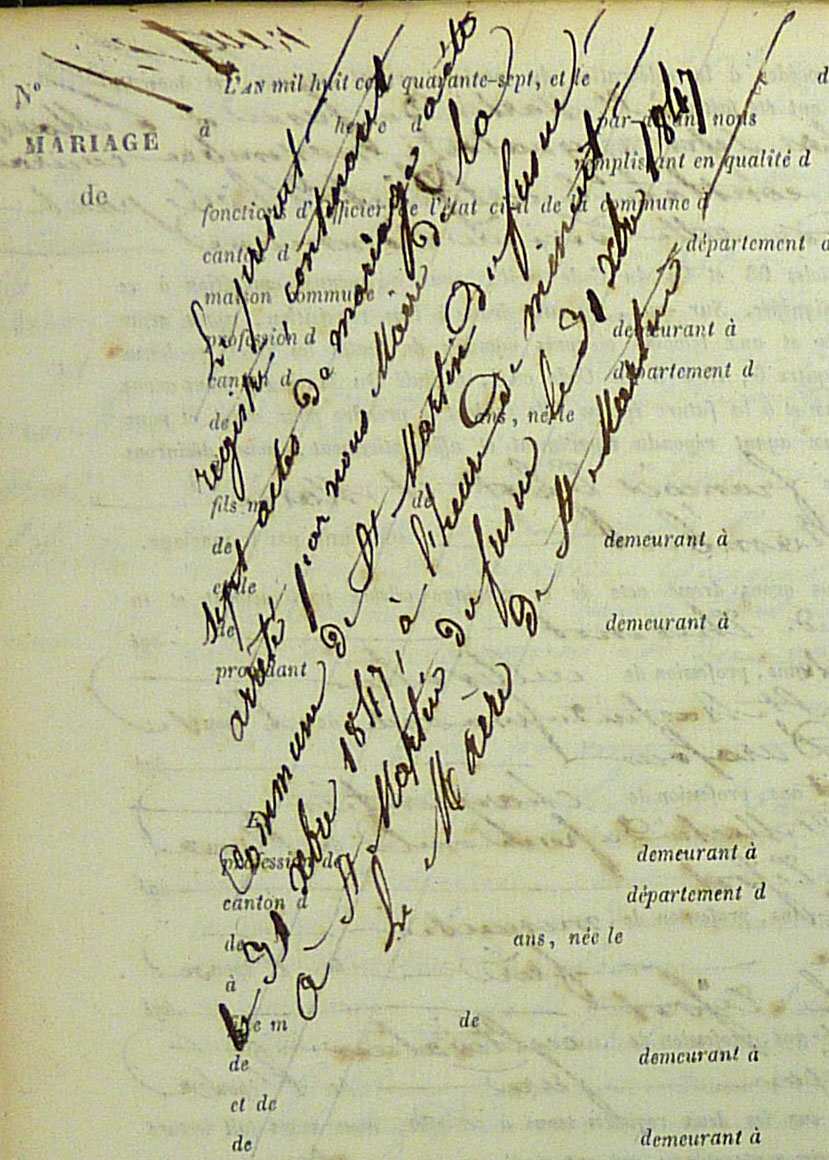 N°
MARIAGE
de
L'AN mil huit cent quarante-sept, et le d
à heure d par-devant nous
remplissant en qualité d
fonctions d'officier de l'état civil de la commune d
canton d département d
maison commune
profession d demeurant à
canton d département d
de ans, né le
fils m de
de demeurant à
et de
de demeurant à
procédant
E
profession de demeurant à
canton d département d
de ans, née le
à
fille m de
de demeurant à
et de
de demeurant à
Le présent
registre, contenant
sept actes de mariage a été
arrêté par nous Maire de la
Commune de St Martin du fusne
le 31 xbre 1847, à l'heure de minuit
a St Martin du fusne le 31 xbre 1847
Le Maire de St Martin